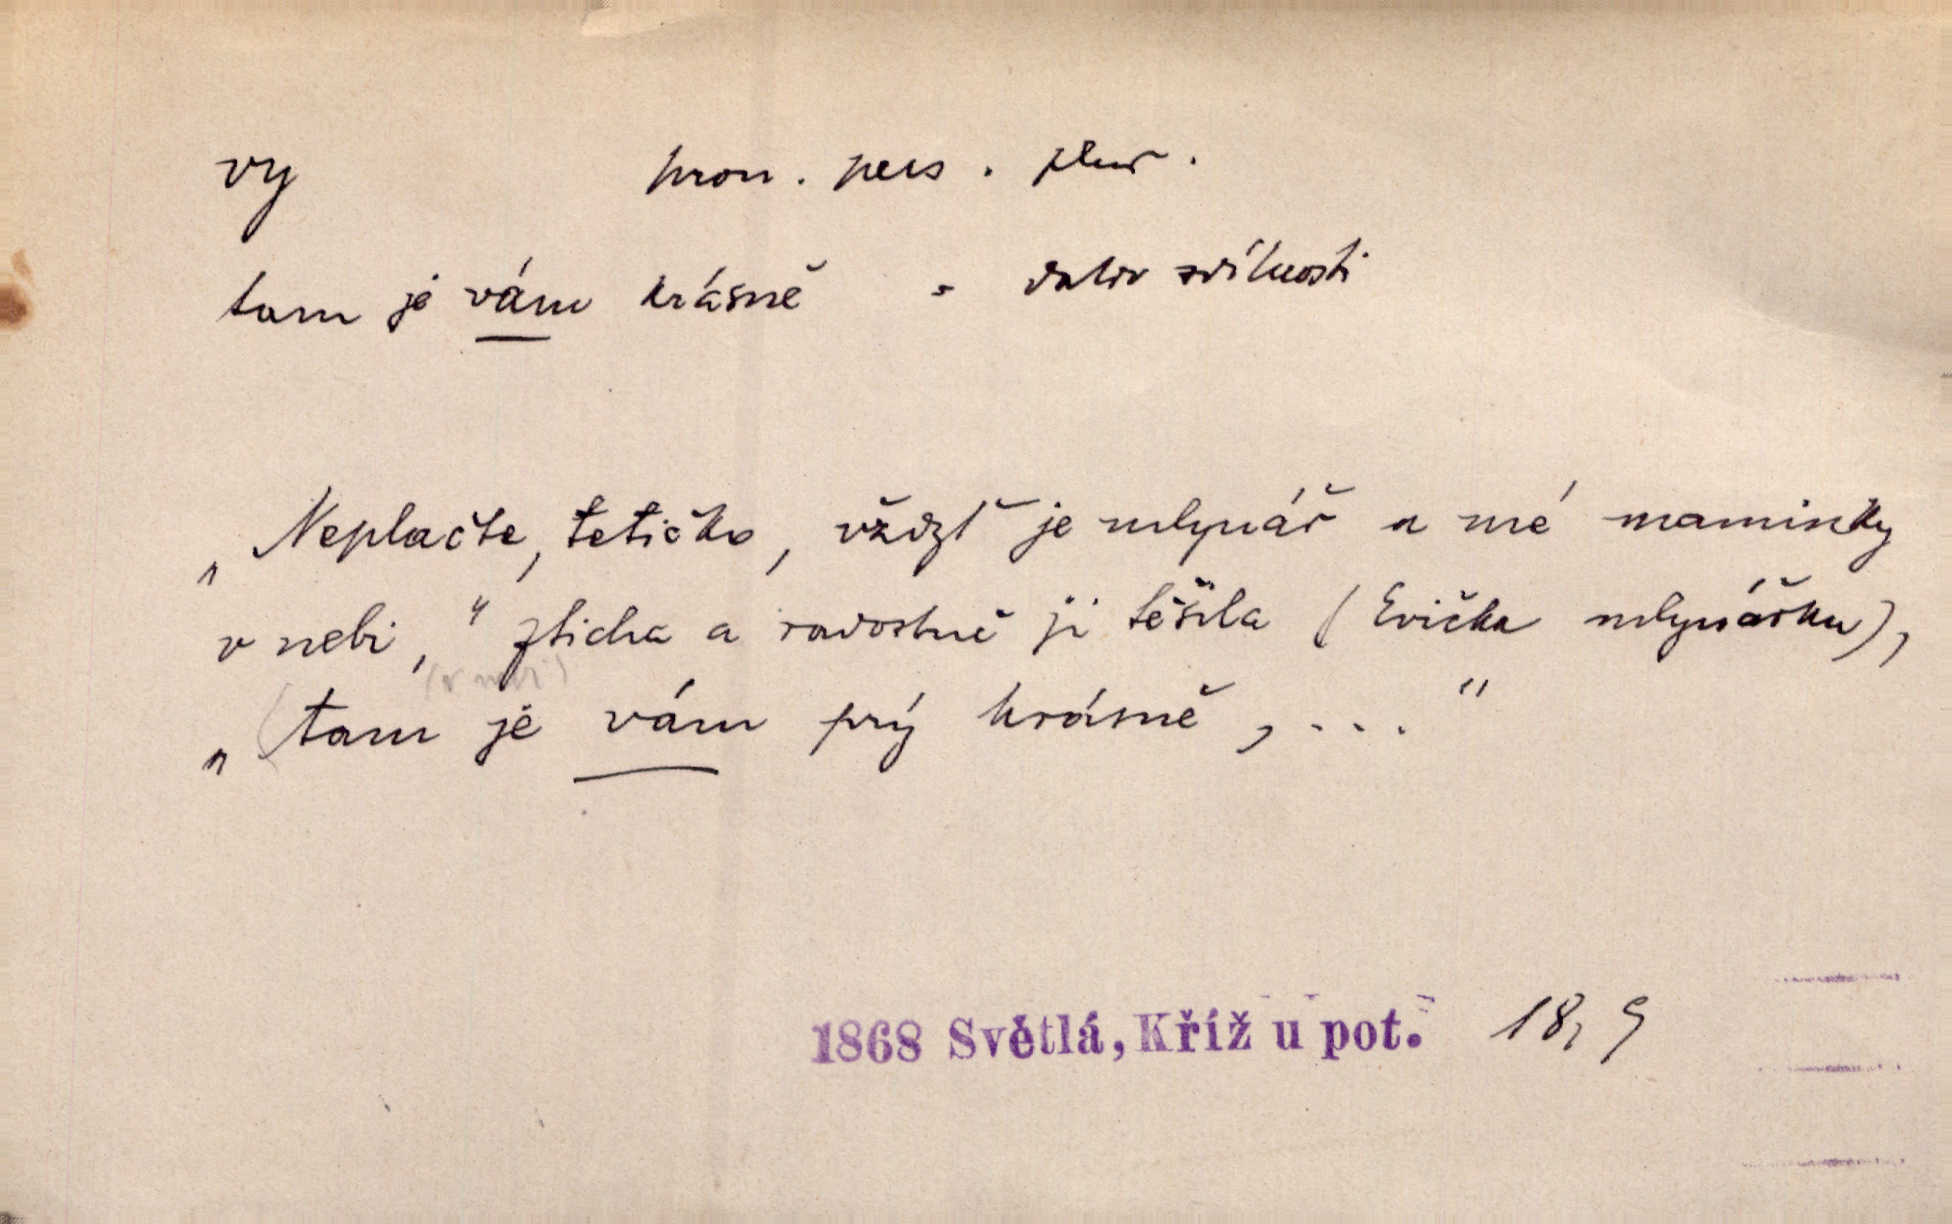 vy pron. pers. plur.
tam je vám krásně - dativ sdílnosti
„Neplačte, tetičko, vždyť je mlynář u mé maminky
v nebi,“ zticha a radostně ji těšila (Evička mlynářku),
(v nebi)
„(tam je vám prý krásně, ...“
1868 Světlá, Kříž u pot. 18, 9